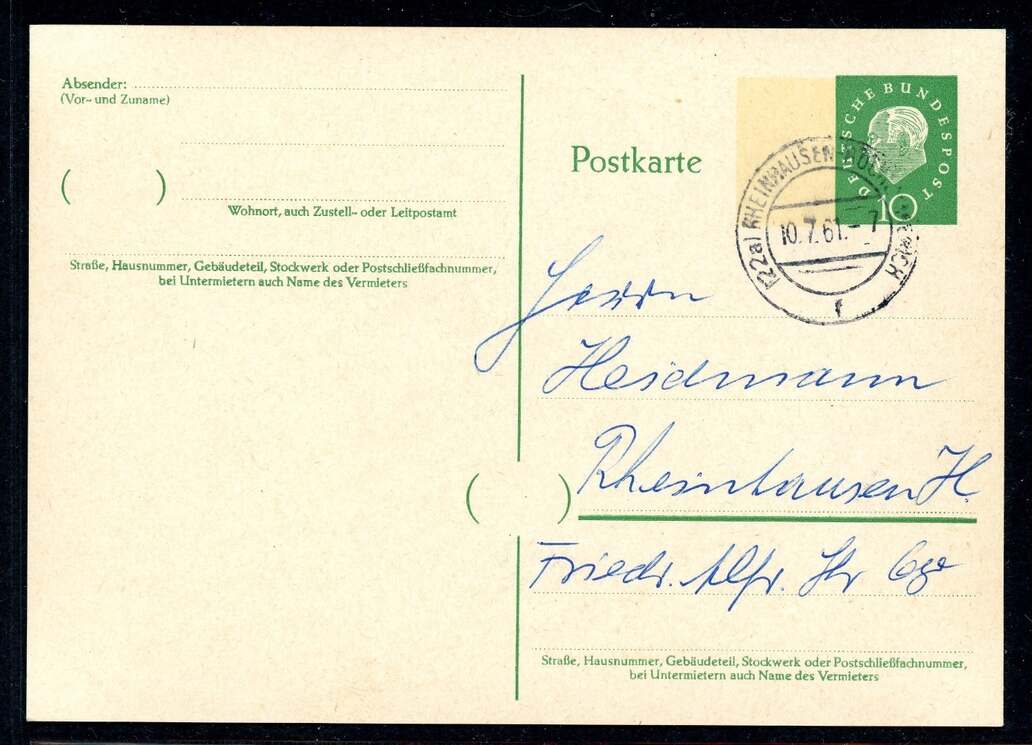 Absender:
(Vor- und Zuname)
( )
Wohnort, auch Zustell- oder Leitpostamt
Straße, Hausnummer, Gebäudeteil, Stockwerk oder Postschließfachnummer,
bei Untermietern auch Name des Vermieters
Postkarte
DEUTSCHE BUNDESPOST
10
(22a) RHEINHAUSEN
10.7.61.-7
f
Herrn
Heidmann
( ) Rheinhausen H.
Friedr. Alfr.
Straße, Hausnummer, Gebäudeteil, Stockwerk oder Postschließfachnummer,
bei Untermietern auch Name des Vermieters